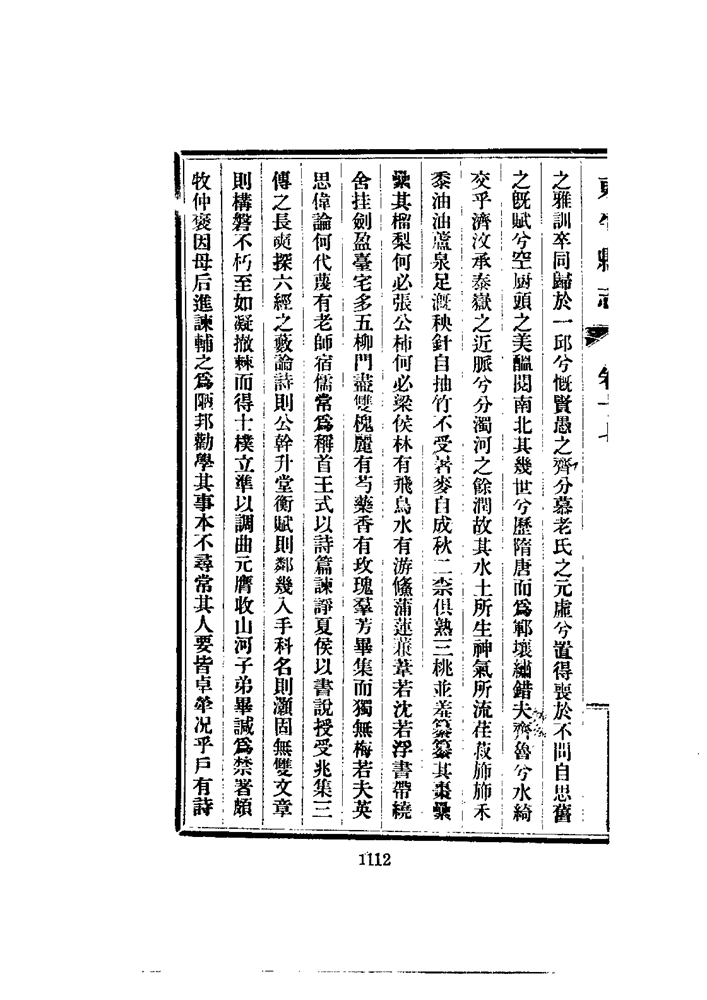 縣志
之雅訓卒同歸於一邱兮慨賢愚之齊分慕老氏之元虛兮置得喪於不問自思舊
之旣賦兮空厨頭之美醞閱南北其幾世兮歷隋唐而爲鄆壤繡錯夫齊魯兮水綺
交乎濟汶承泰嶽之近脈兮分濁河之餘潤故其水土所生神氣所流荏菽斾斾禾
黍油油蘆泉足漑秧針自抽竹不受暑麥自成秋二柰俱熟三桃並羞纂纂其棗纍
纍其榴梨何必張公柿何必梁侯林有飛鳥水有游鯈蒲蓮蒹葦若沈若浮書帶繞
舍挂劍盈臺宅多五柳門盡雙槐麗有芍藥香有玫瑰羣芳畢集而獨無梅若夫英
思偉論何代蔑有老師宿儒常爲稱首王式以詩篇諫諍夏侯以書說授受兆集三
傳之長奭探六經之藪論詩則公幹升堂衡賦則鄰幾入手科名則灝固無雙文章
則構磐不朽至如凝撤棘而得士樸立準以調曲元膺收山河子弟畢諴爲禁署頗
牧仲褒因母后進諫輔之爲陋邦勸學其事本不尋常其人要皆卓犖况乎戶有詩
1112